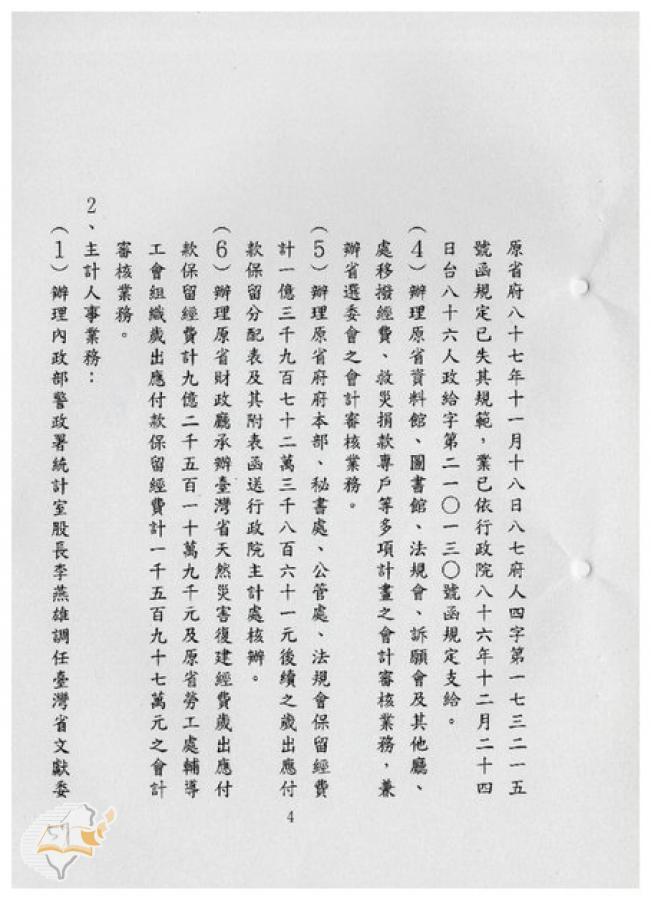 原省府八十七年十一月十八日八七府人四字第一七三二一五
號函規定已失其規範，業已依行政院八十六年十二月二十四
日台八十六人政給字第二一〇一三〇號函規定支給。
（4）辦理原省資料館、圖書館、法規會、訴願會及其他廳、
處移撥經費、救災捐款專戶等多項計畫之會計審核業務，兼
辦省選委會之會計審核業務。
（5）辦理原省府府本部、秘書處、公管處、法規會保留經費
計一億三千九百七十二萬三千八百六十一元後續之歲出應付
款保留分配表及其附表函送行政院主計處核辦。
（6）辦理原省財政廳承辦臺灣省天然災害復建經費歲出應付
款保留經費計九億二千五百一十萬九千元及原省勞工處輔導
工會組織歲出應付款保留經費計一千五百九十七萬元之會計
審核業務。
2、主計人事業務：
（1）辦理內政部警政署統計室股長李燕雄調任臺灣省文獻委
4